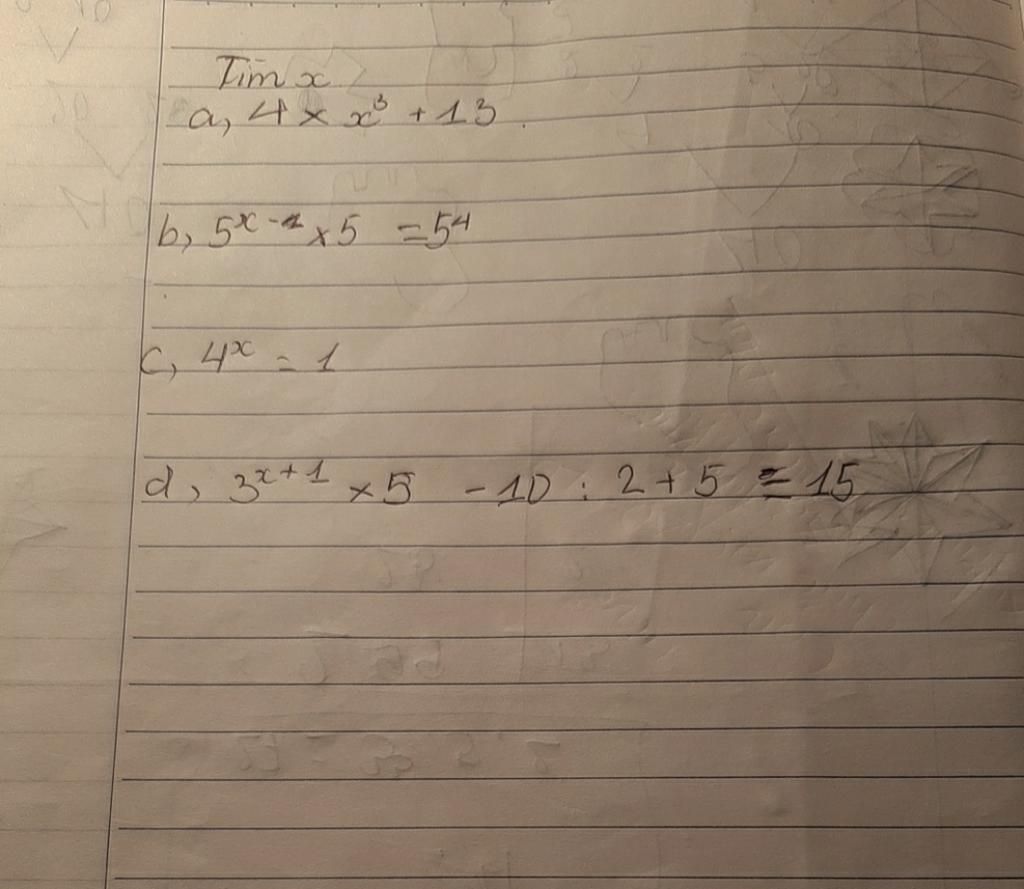 Tìm x
a, 4 × x³ + 13
b, 5ˣ⁻¹ × 5 = 5⁴
c, 4ˣ = 1
d, 3ˣ⁺¹ × 5 - 10 : 2 + 5 = 15